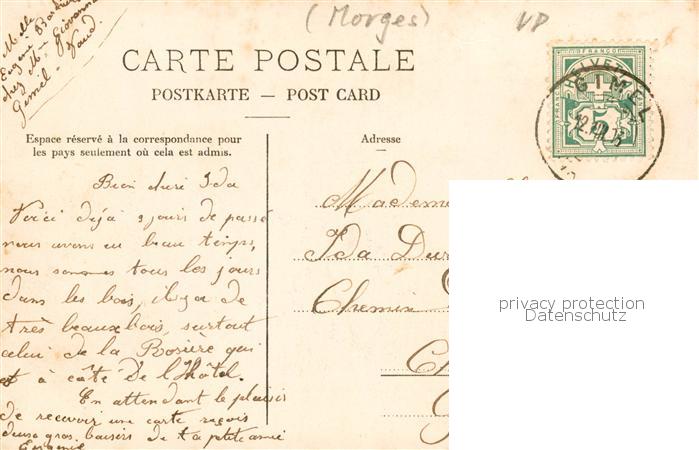 (Morges)
VD
Melle
Eugénie
chez Mr Giovanna
Gimel - Vaud.
CARTE POSTALE
POSTKARTE — POST CARD
Espace réservé à la correspondance pour
les pays seulement où cela est admis.
Adresse
FRANCO
HELVETIA
5
GIMEL
Bien chère Ida
Voici déjà 2 jours de passé
nous avons eu beau temps,
nous sommes tous les jours
dans les bois, il y a de
très beaux bois, surtout
celui de la Rosière qui
est à côté De l'Hôtel.
En attendant le plaisir
de recevoir une carte reçois
deux gros baisers de ta petite amie
Eugénie
Mademe
Ida Dur
Chemin
privacy protection
Datenschutz